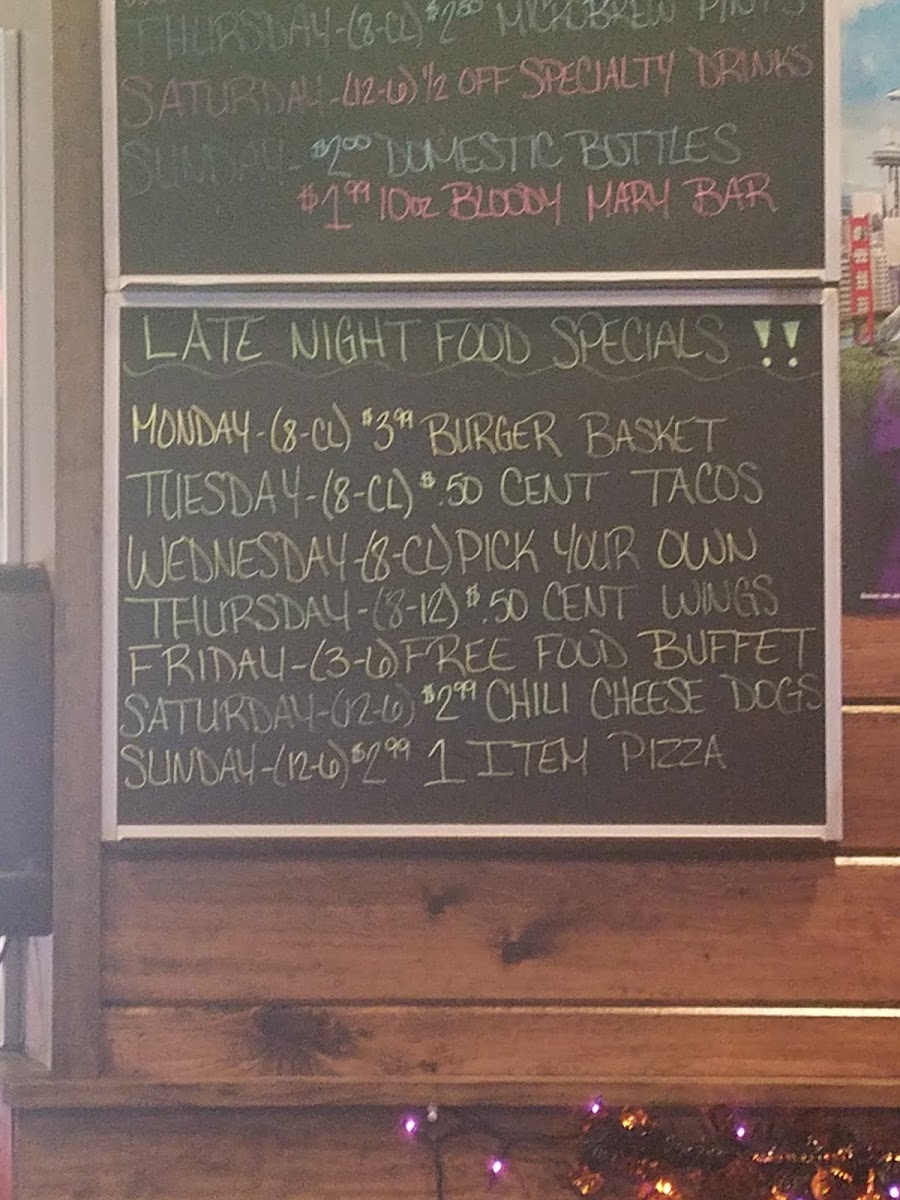 THURSDAY-(8-CL) $2.50 MICROBREW PINTS
SATURDAY-(12-6) 1/2 OFF SPECIALTY DRINKS
SUNDAY- $2.00 DOMESTIC BOTTLES
$1.99 10oz BLOODY MARY BAR
LATE NIGHT FOOD SPECIALS !!
MONDAY-(8-CL) $3.99 BURGER BASKET
TUESDAY-(8-CL) $.50 CENT TACOS
WEDNESDAY-(8-CL) PICK YOUR OWN
THURSDAY-(8-12) $.50 CENT WINGS
FRIDAY-(3-6) FREE FOOD BUFFET
SATURDAY-(12-6) $2.99 CHILI CHEESE DOGS
SUNDAY-(12-6) $2.99 1 ITEM PIZZA